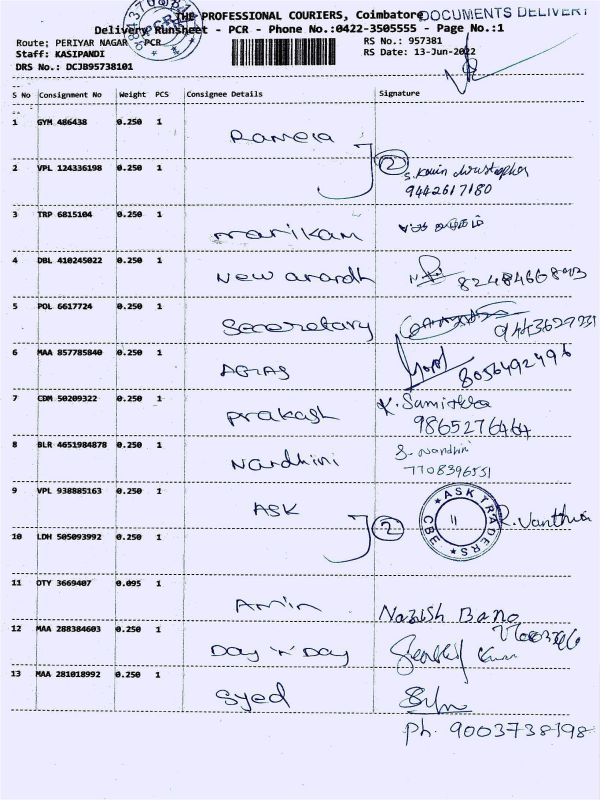 THE PROFESSIONAL COURIERS, Coimbatore DOCUMENTS DELIVERY
Delivery Runsheet - PCR - Phone No.:0422-3505555 - Page No.:1
Route: PERIYAR NAGAR - PCR RS No.: 957381
Staff: KASIPANDI RS Date: 13-Jun-2022
DRS No.: DCJB95738101
S No Consignment No Weight PCS Consignee Details Signature
1 GYM 486438 0.250 1 Ramela
2 VPL 124336198 0.250 1 2 S. Kevin Christopher
9442617180
3 TRP 6815104 0.250 1 marikam
4 DBL 410245022 0.250 1 New anandh
5 POL 6617724 0.250 1 Secretary
6 MAA 857785840 0.250 1 8056492496
7 CDM 50209322 0.250 1 prakash K. Samikka
9865276464
8 BLR 4651984878 0.250 1 Nandhini S. Nandhini
7708396551
9 VPL 938885163 0.250 1 ASK ASK TRADERS CBE
10 LDH 505093992 0.250 1 2 R. Vanthia
11 OTY 3669407 0.095 1 Amin Nazish Bano
12 MAA 288384603 0.250 1 Day 'n' Day
13 MAA 281018992 0.250 1 Syed
Ph. 9003738198